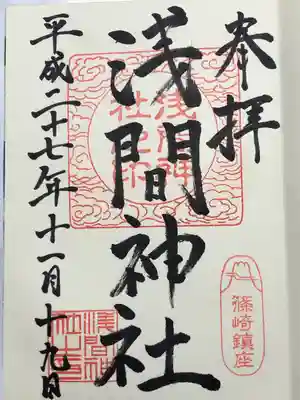 奉拝
篠崎鎮座
浅間神社
浅間神社之印
平成二十七年十一月十九日